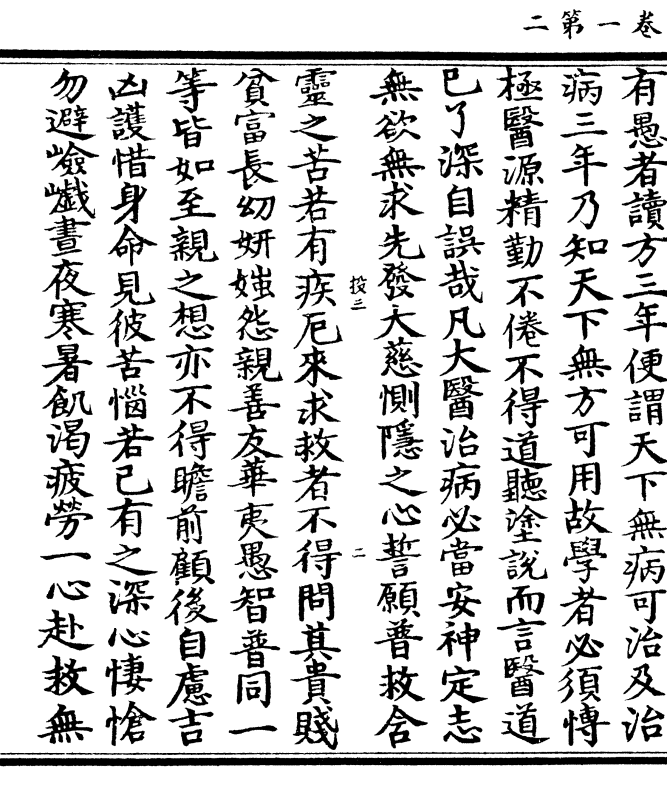 卷一第二
有愚者讀方三年便謂天下無病可治及治
病三年乃知天下無方可用故學者必須愽
極醫源精勤不倦不得道聽塗說而言醫道
已了深自誤哉凡大醫治病必當安神定志
無欲無求先發大慈惻隱之心誓願普救含
投三
二
靈之苦若有疾厄來求救者不得問其貴賤
貧富長幼妍媸怨親善友華夷愚智普同一
等皆如至親之想亦不得瞻前顧後自慮吉
凶護惜身命見彼苦惱若己有之深心悽愴
勿避嶮巇晝夜寒暑飢渴疲勞一心赴救無